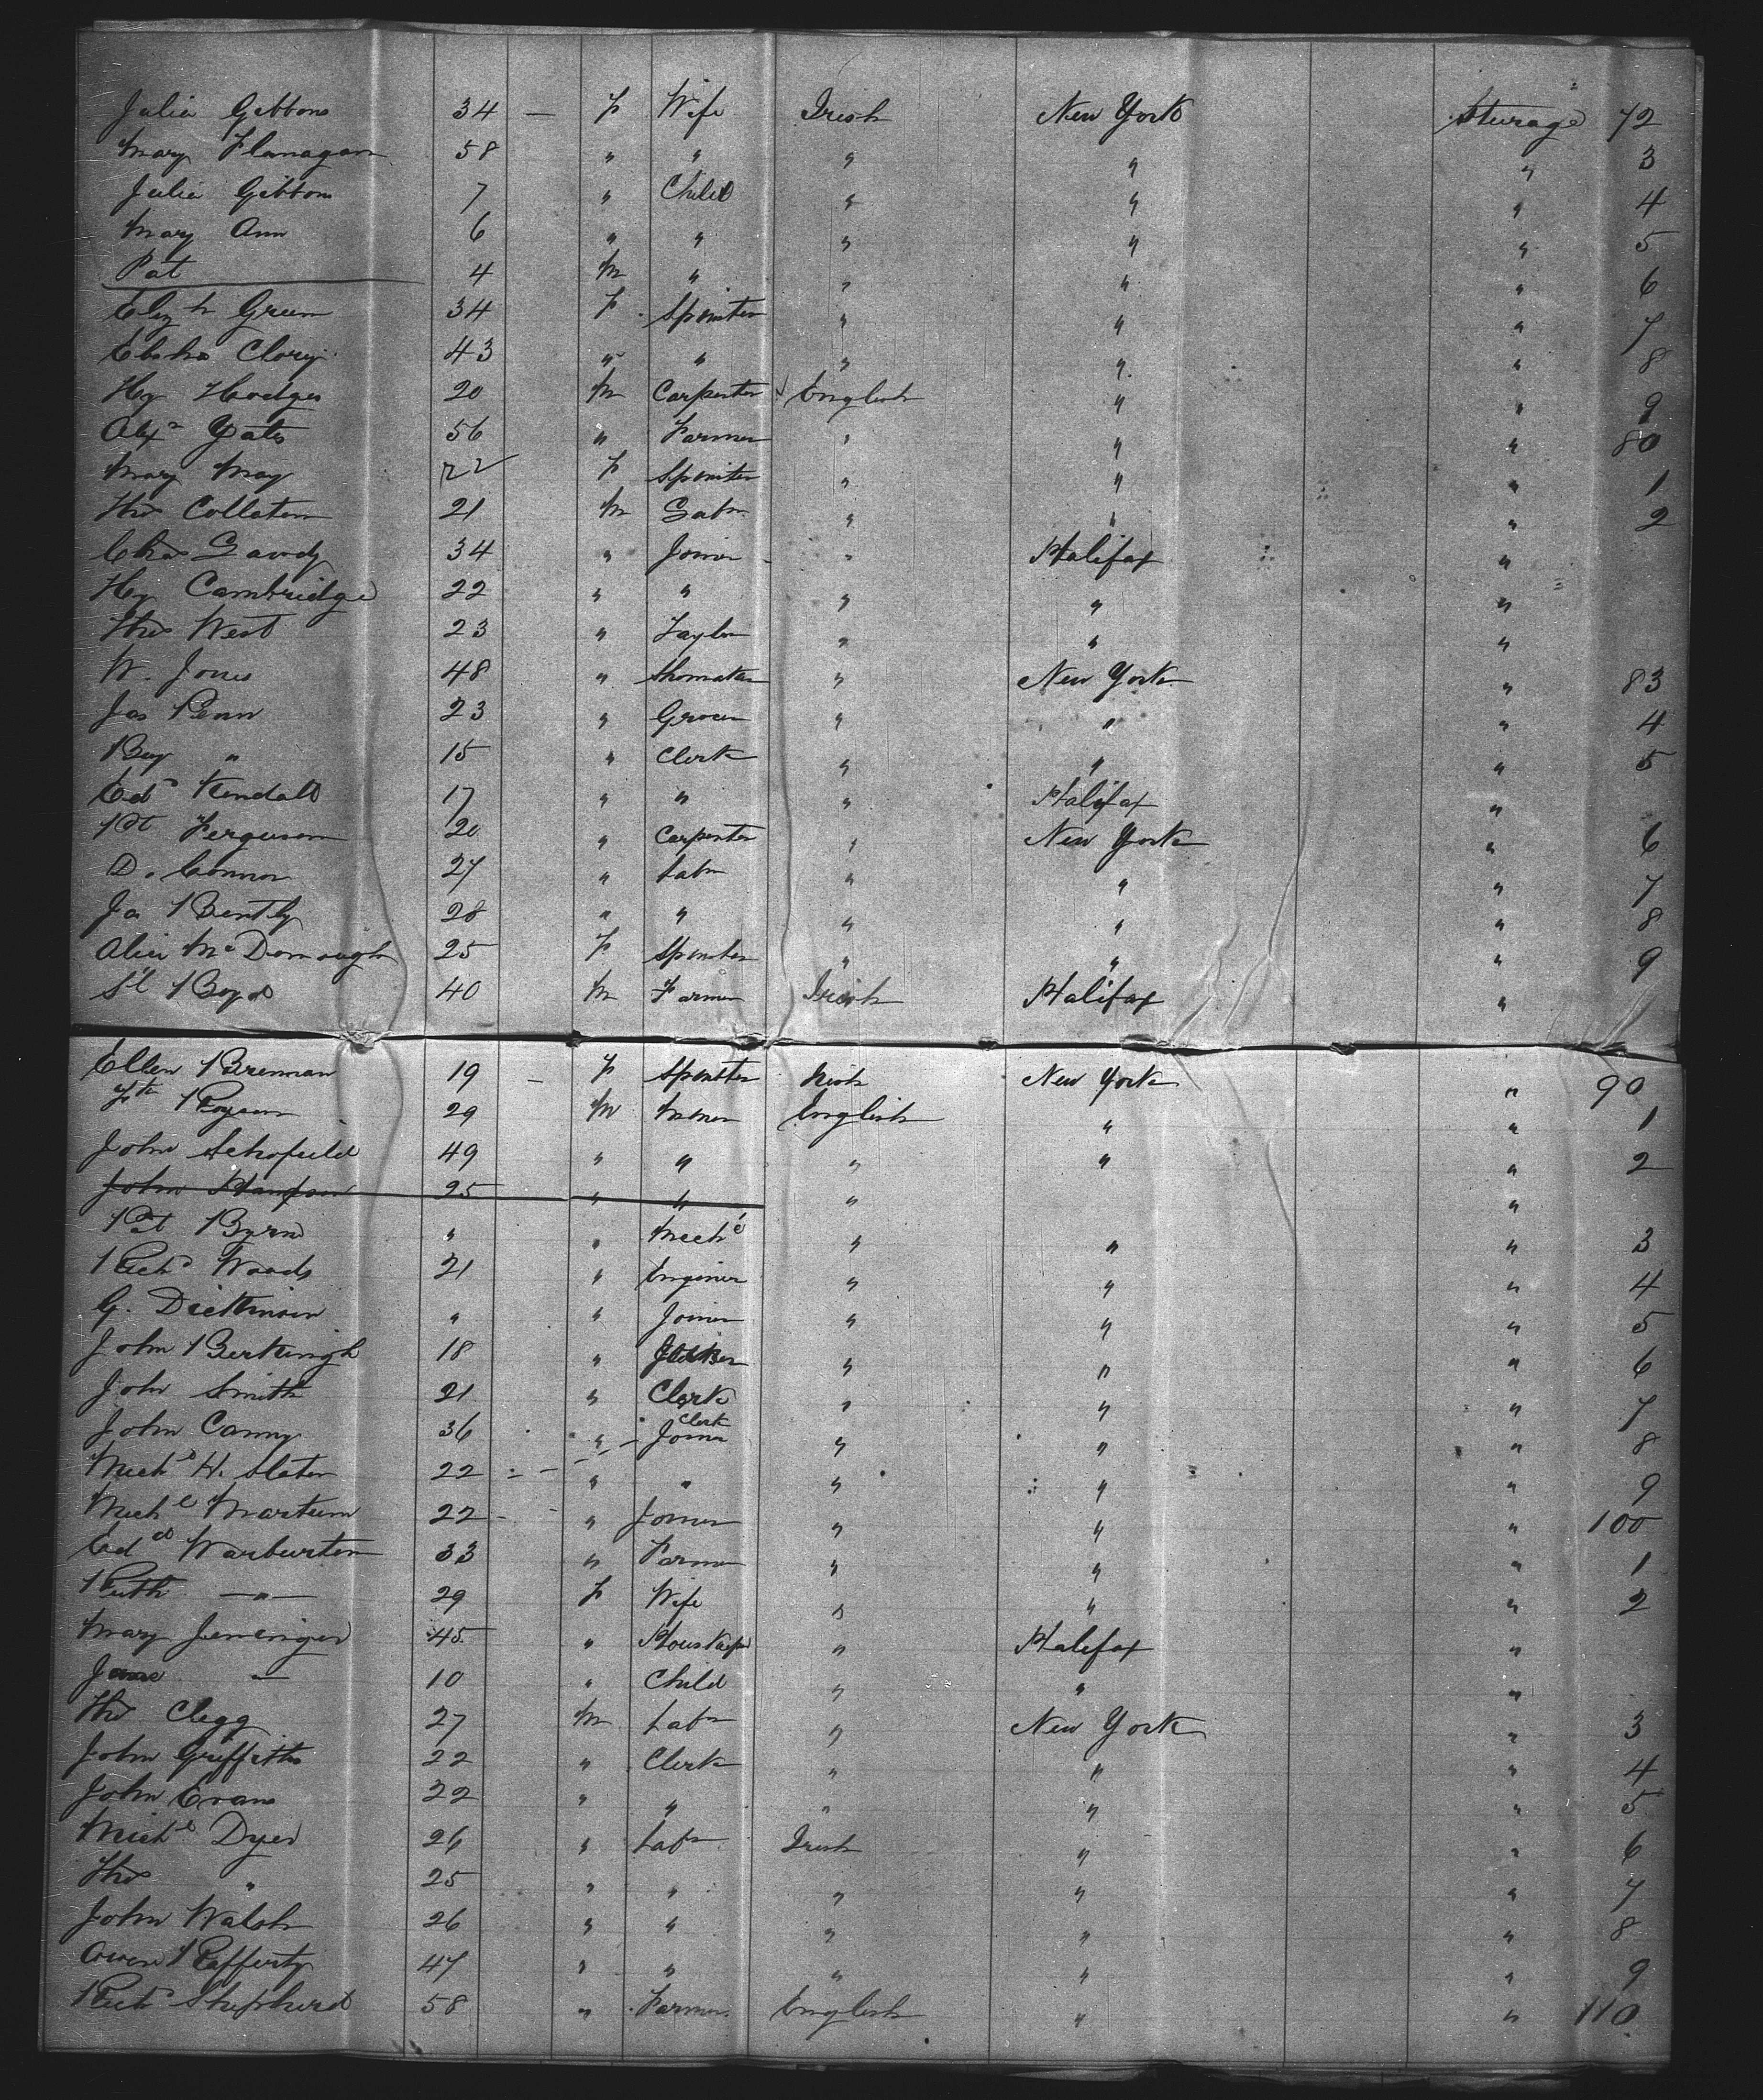 Julia Gibbons 34 — F Wife Irish New York Sterage 72
Mary Flanagan 58 " " " " " 3
Julia Gibbons 7 " Child " " " 4
Mary Ann 6 " " " " " 5
Pat 4 M " " " " 6
Elizth Green 34 F Spinster " " " 7
43 " " " " " 8
Hy Hodges 20 M Carpenter English " " 9
Alexr Yates 56 " Farmer " " " 80
Mary May 22 F Spinster " " " 1
Thos Collaton 21 M Labr " " " 2
Chas 34 " Joiner " Halifax "
Hy Cambridge 22 " " " " "
Thos West 23 " Taylor " " "
W. Jones 48 " Shomaker " New York " 83
Jas Penn 23 " Grocer " " " 4
" 15 " Clerk " " " 5
Edd Kendall 17 " " " Halifax "
Pt Ferguson 20 " Carpenter " New York " 6
D. Connor 27 " Labr " " " 7
Jas Bently 28 " " " " " 8
Alice McDonough 25 F Spinster " " " 9
Sl Boyd 40 M Farmer Irish Halifax "
Ellen Brennan 19 — F Spinster Irish New York " 90
29 M Miner English " " 1
John Schofield 49 " " " " " 2
John Hampson 25 " " " "
Pat Byrne " " Mechc " " " 3
Richd Woods 21 " Enginer " " " 4
G. Dickinson " " Joiner " " " 5
John 18 " " " " 6
John Smith 21 " Clerk " " " 7
John Canny 36 " — Joiner Clerk " " " 8
Michl H. Slater 22 " " " " " 9
Michl Martin 22 - " Joiner " " " 100
Edd Warburton 33 " Farmer " " " 1
Ruth — " — 29 F Wife " " " 2
Mary Jenninger 45 " Houskeeper " Halifax "
Jane — 10 " Child " " "
Thos Clegg 27 M Labr " New York " 3
John Griffiths 22 " Clerk " " " 4
John Evans 22 " " " " " 5
Michl Dyer 26 " Labr Irish " " 6
Thos " 25 " " " " " 7
John Walsh 26 " " " " " 8
Owen Rafferty 47 " " " " " 9
Richd Shepherd 58 " Farmer English " " 110